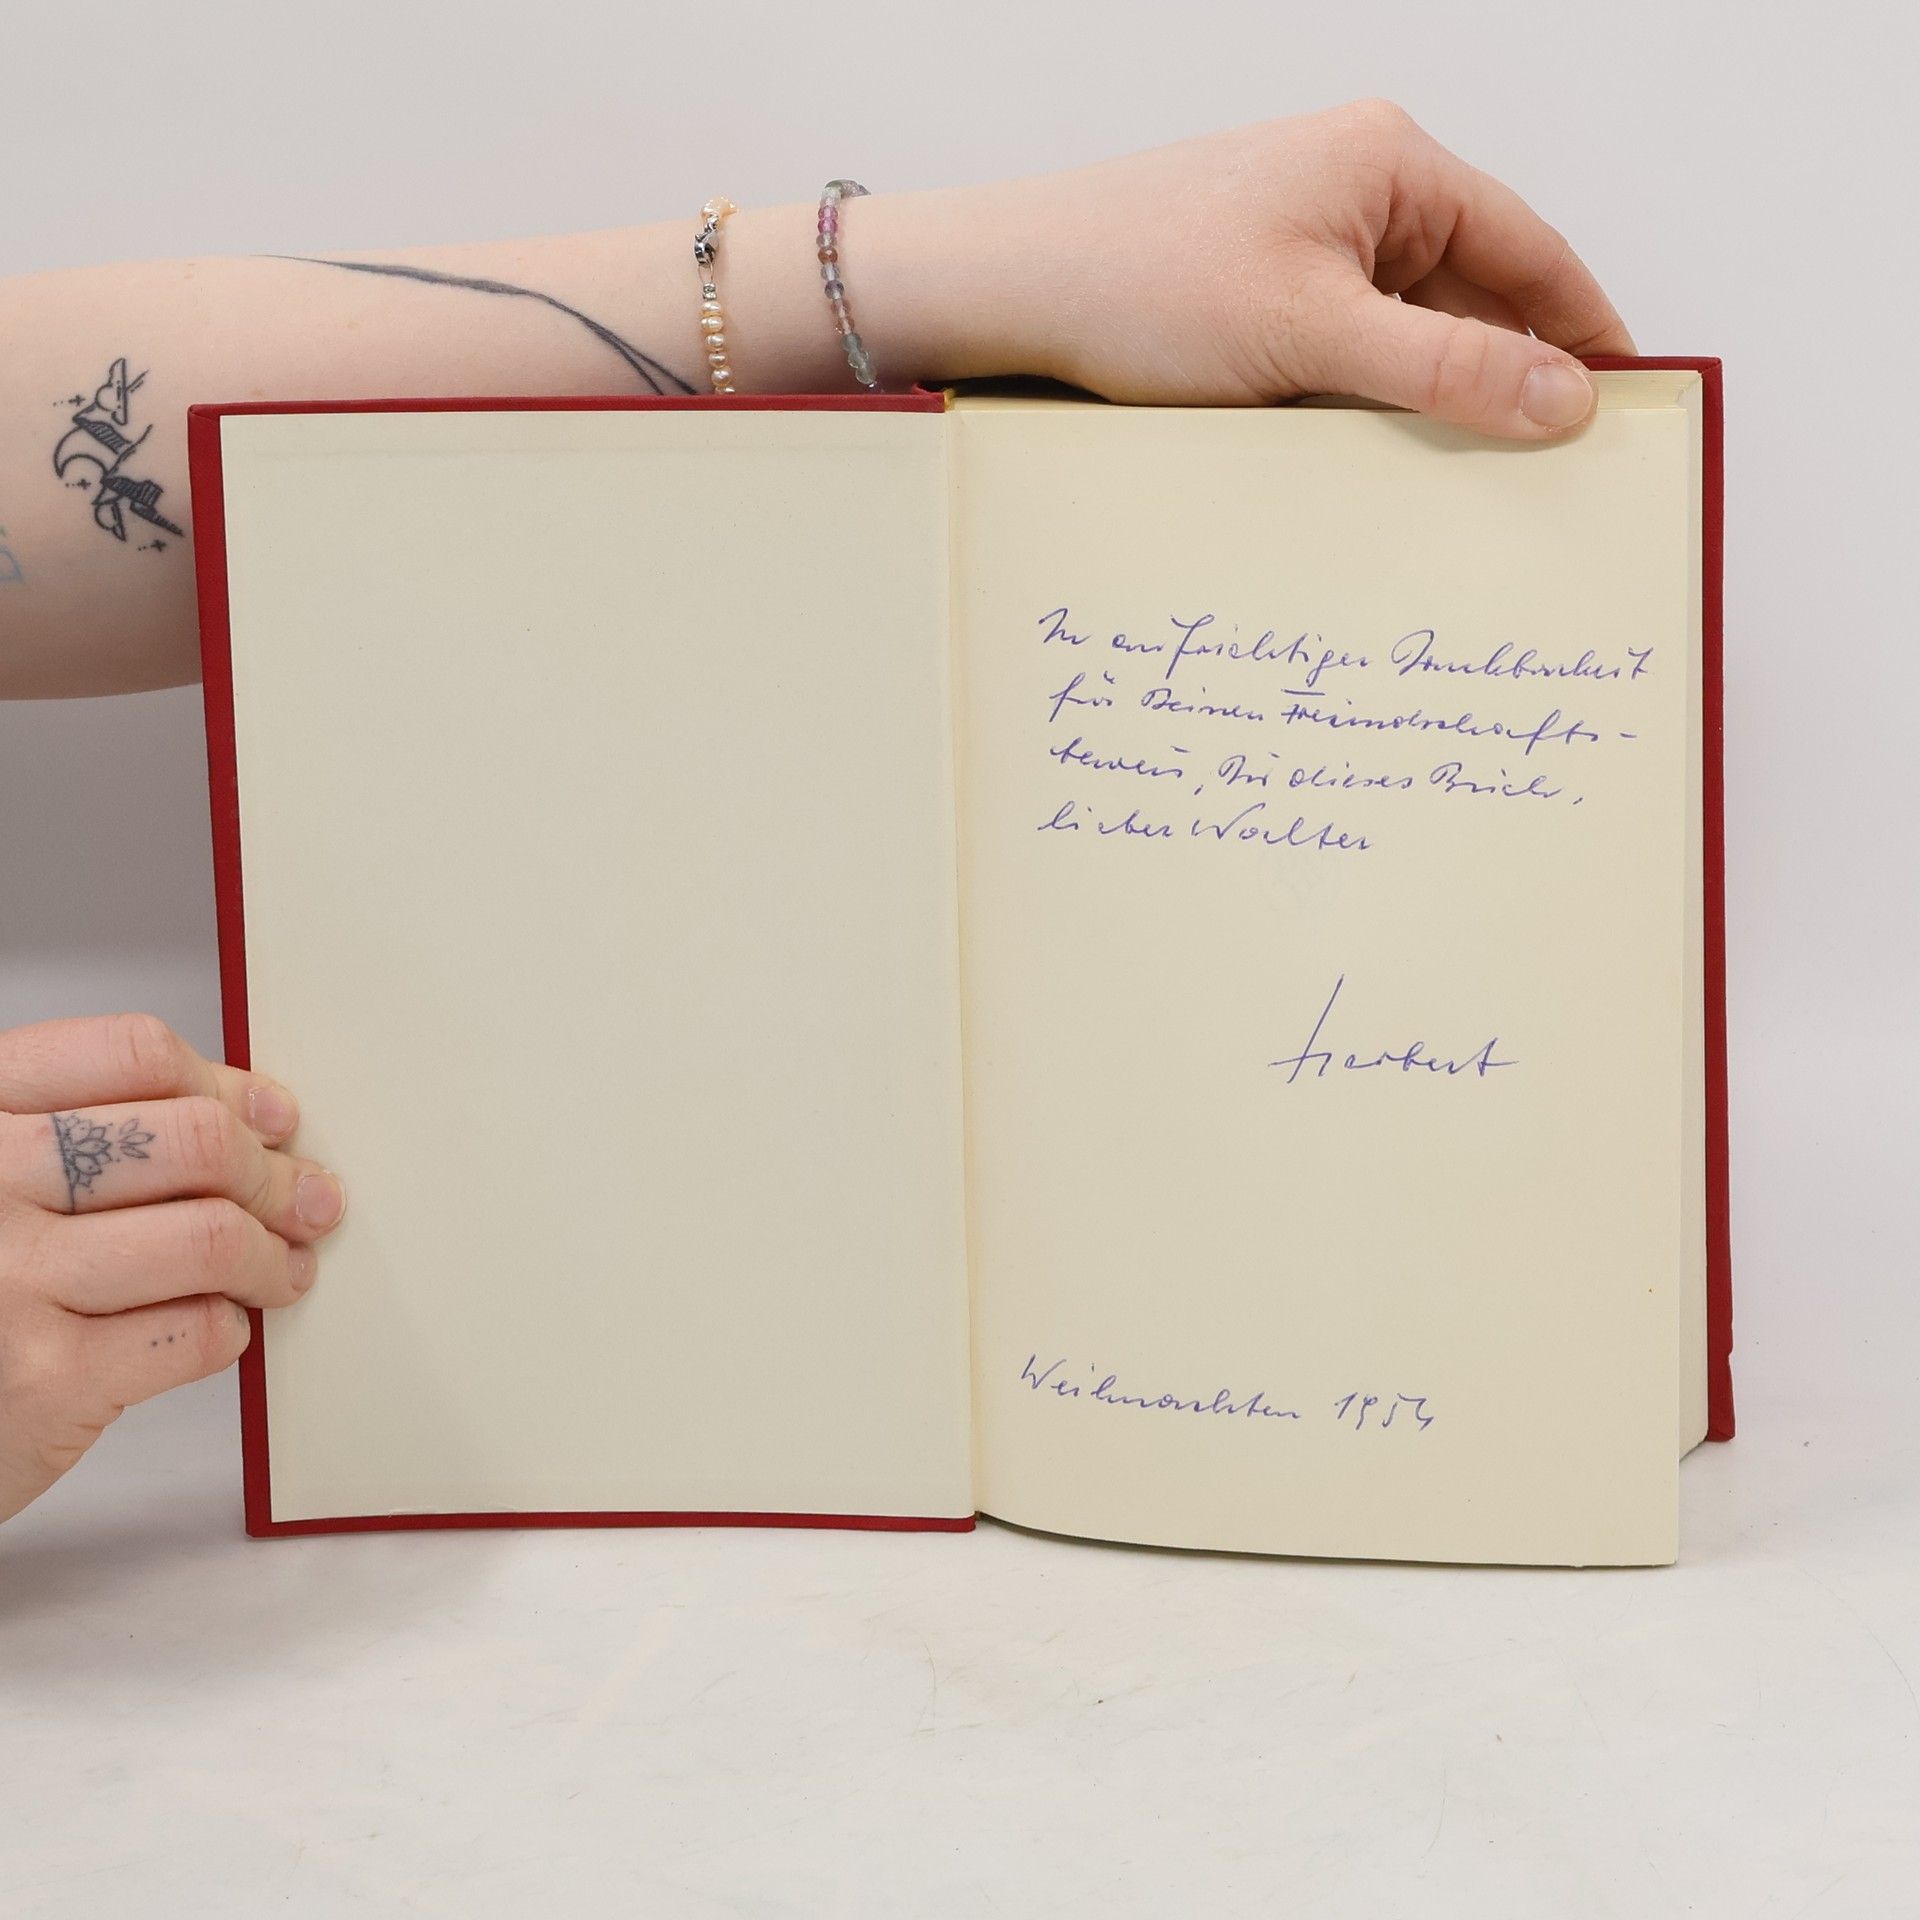 In aufrichtiger Dankbarkeit
für Deinen Freundschafts-
beweis, Dir dieses Buch,
lieber Walter
Herbert
Weihnachten 1954